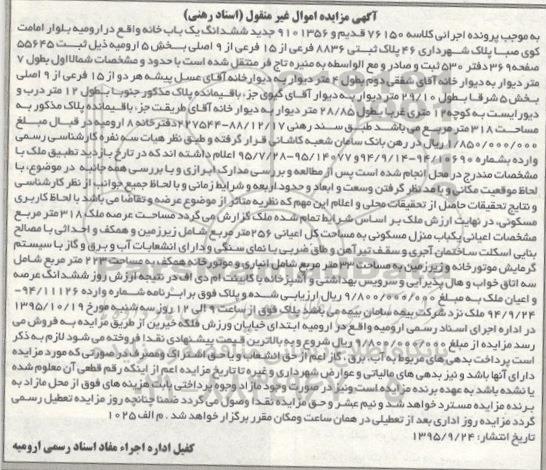 آگهی مزایده اموال غیر منقول (اسناد رهنی)
به موجب پرونده اجرائی کلاسه ۷۶۱۵۰ قدیم و ۹۱۰۱۳۵۶ جدید ششدانگ یک باب خانه واقع در ارومیه بلوار امامت
کوی صبا پلاک شهرداری ۴۶ پلاک ثبتی ۸۸۳۶ فرعی از ۱۵ فرعی از ۹ اصلی بخش ۵ ارومیه ذیل ثبت ۵۵۶۴۵
صفحه ۳۶۹ دفتر ۵۳۰ ثبت و صادر و مع الواسطه به منیره تاج فر منتقل شده است با حدود و مشخصات شمالا اول بطول ۷
متر دیوار به دیوار خانه آقای شفقی دوم بطول ۴ متر دیوار به دیوار خانه آقای عسل پیشه هر دو از ۱۵ فرعی از ۹ اصلی
بخش ۵ شرقا بطول ۲۹/۱۰ متر دیوار به دیوار آقای گیوی جز، باقیمانده پلاک مذکور جنوبا بطول ۱۲ متر درب و
دیوار یست به کوچه ۱۲ متری غربا بطول ۲۸/۸۵ متر دیوار به دیوار خانه آقای طریقت جز، باقیمانده پلاک مذکور به
مساحت ۳۱۸ متر مربع می باشد طبق سند رهنی ۲۷۵۴۴-۸۸/۱۲/۰۷ دفترخانه ۸ ارومیه در قبال مبلغ
۱/۸۵۰/۰۰۰/۰۰۰ ریال در رهن بانک سامان شعبه کاشانی قرار گرفته و طبق نظر هیات سه نفره کارشناسی رسمی
وارده بشماره ۹۴/۱۰۶۹۰-۹۴/۹/۱۴ و ۹۵/۱۴۰۷۷-۹۵/۷/۲۸ اعلام داشته اند که در تاریخ بازدید تطبیق ملک با
مشخصات مندرج در محل انجام شده است پس از مطالعه و بررسی مدارک ابرازی و با بررسی همه جانبه در موضوع، با
لحاظ موقعیت مکانی و با مد نظر گرفتن وسعت و ابعاد و حدود اربعه و شرایط زمانی و با لحاظ جمیع جوانب از نظر کارشناسی
و نتایج تحقیقات حاصل از تحقیقات محلی و اعلام این مهم که نظریه متاثر از موضوع عرضه و تقاضا می باشد با لحاظ کاربری
مسکونی، در نهایت ارزش ملک بر اساس شرایط تمام شده ملک گزارش می گردد مساحت عرصه ملک ۳۱۸ متر مربع
مشخصات اعیانی یکباب منزل مسکونی به مساحت کل اعیانی ۲۵۶ متر مربع شامل زیرزمین و همکف و احداثی با مصالح
بنایی اسکلت ساختمان آجری و سقف تیرآهن و طاق ضربی با نمای سنگی و دارای انشعابات آب و برق و گاز با سیستم
گرمایش موتورخانه و زیرزمین به مساحت ۳۳ متر مربع شامل انباری و موتورخانه همکف به مساحت ۲۲۳ متر مربع شامل
سه اتاق خواب و هال پذیرایی و سرویس بهداشتی و آشپزخانه با کابینت ام دی اف در نتیجه ارزش روز ششدانگ عرصه
و اعیان ملک به مبلغ ۹/۸۰۰/۰۰۰/۰۰۰ ریال ارزیابی شده و پلاک فوق برابر نامه شماره وارده ۹۴/۱۱۱۲۶-
۹۴/۹/۲۴ ملک نزد شرکت بیمه سامان بیمه می باشد پلاک فوق از ساعت ۹ الی ۱۲ روز سه شنبه مورخ ۱۳۹۵/۱۰/۱۹
در اداره اجرای اسناد رسمی ارومیه واقع در ارومیه ابتدای خیابان ورزش فلکه خیرین از طریق مزایده به فروش می
رسد مزایده از مبلغ ۹/۸۰۰/۰۰۰/۰۰۰ ریال شروع و به بالاترین قیمت پیشنهادی نقدا فروخته می شود لازم به ذکر
است پرداخت بدهی های مربوط به آب، برق، گاز اعم از حق انشعاب و یا حق اشتراک و مصرف در صورتی که مورد مزایده
دارای آنها باشد و نیز بدهی های مالیاتی و عوارض شهرداری و غیره تا تاریخ مزایده اعم از اینکه رقم قطعی آن معلوم شده
یا نشده باشد به عهده برنده مزایده است و نیز در صورت وجود مازاد وجوه پرداختی بابت هزینه های فوق از محل مازاد به
برنده مزایده مسترد خواهد شد و نیم عشر و حق مزایده نقدا وصول می گردد ضمنا چنانچه روز مزایده تعطیل رسمی
گردد مزایده روز اداری بعد از تعطیلی در همان ساعت و مکان مقرر برگزار خواهد شد. م الف ۱۰۲۵
تاریخ انتشار: ۱۳۹۵/۹/۲۴
کفیل اداره اجراء مفاد اسناد رسمی ارومیه